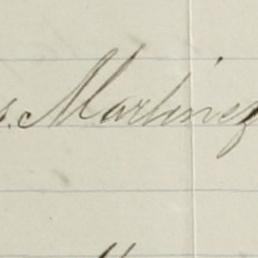 s. Martinez